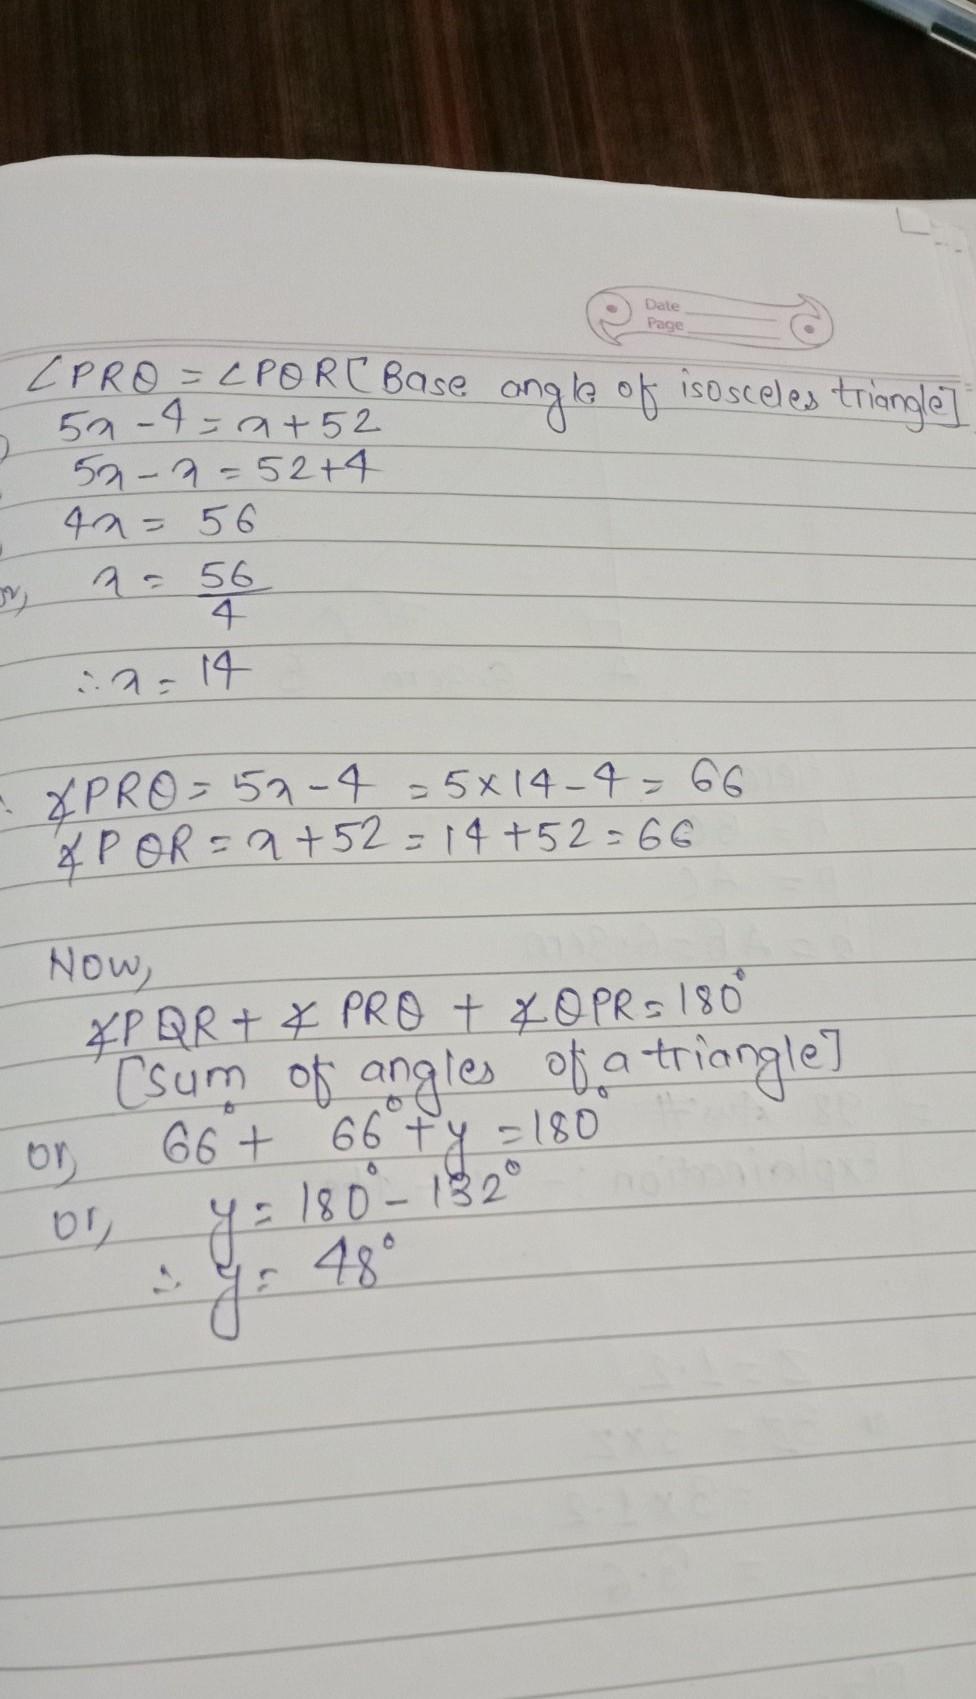 Date
Page
∠PRQ = ∠PQR [Base angle of isosceles triangle]
5x - 4 = x + 52
5x - x = 52 + 4
4x = 56
or, x = 56/4
∴ x = 14
∡PRQ = 5x - 4 = 5 × 14 - 4 = 66
∡PQR = x + 52 = 14 + 52 = 66
Now,
∡PQR + ∡PRQ + ∡QPR = 180°
[Sum of angles of a triangle]
or, 66° + 66° + y = 180°
or, y = 180° - 132°
∴ y = 48°